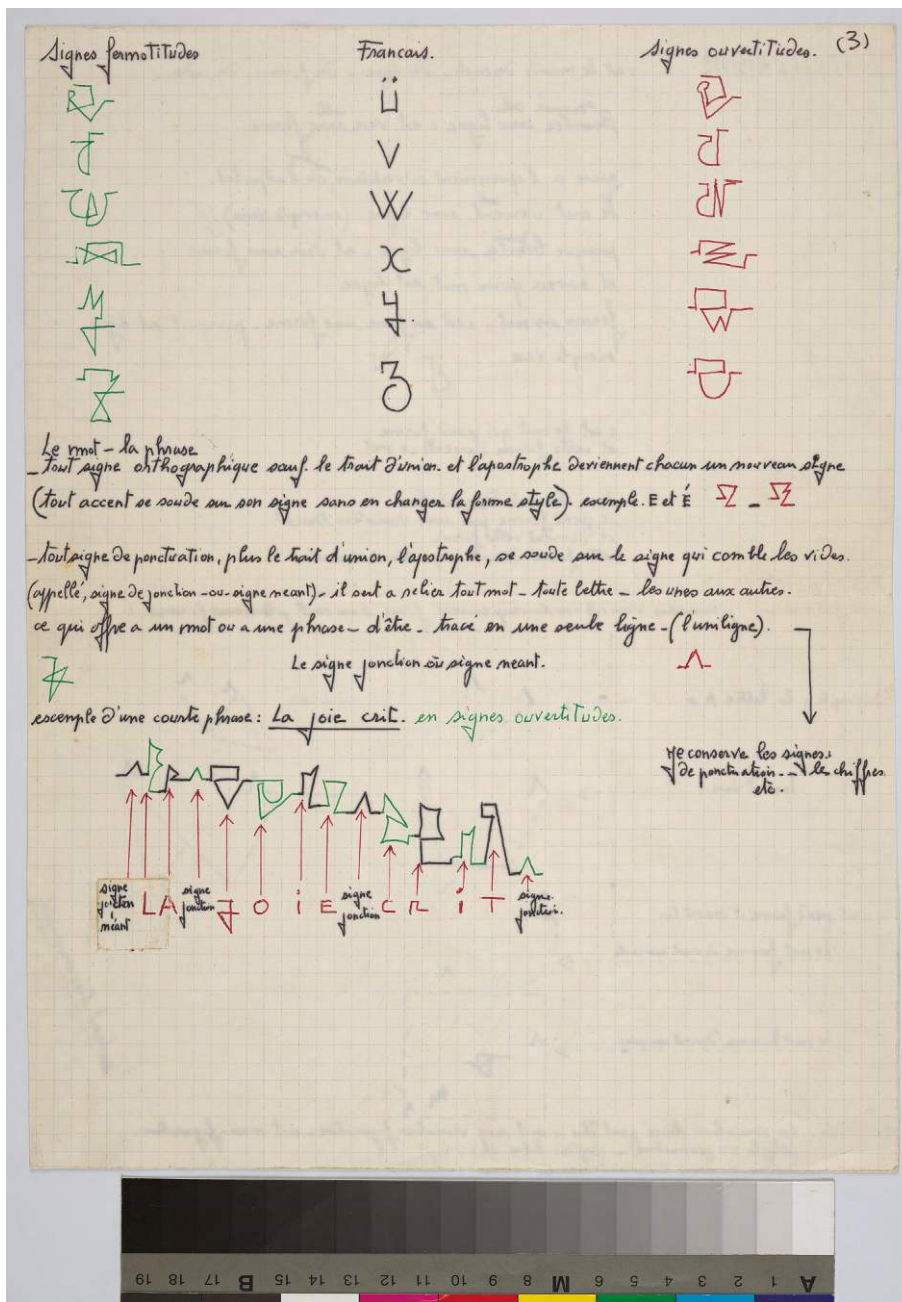 (3)
Signes fermotitudes Francais. Signes ouvertitudes.
ü
V
W
x
y
3
Le mot - la phrase
- tout signe orthographique sauf. le trait d'union. et l'apostrophe deviennent chacun un nouveau signe
(tout accent se soude sur son signe sans en changer la forme style). exemple. E et É
- tout signe de ponctuation, plus le trait d'union, l'apostrophe, se soude sur le signe qui comble les vides.
(appellé, signe de jonction - ou - signe neant) - il sert a relier tout mot - toute lettre - les unes aux autres.
ce qui offre a un mot ou a une phrase - d'être - tracé en une seule ligne - (l'uniligne).
Le signe jonction où signe neant.
exemple d'une courte phrase: La joie crit. en signes ouvertitudes.
Je conserve les signes:
de ponctuation - - le chiffres
etc.
signe jonction néant L A signe jonction J O i E signe jonction C R i T signe jonction.
19 18 17 B 15 14 13 12 11 10 9 8 M 6 5 4 3 2 1 A